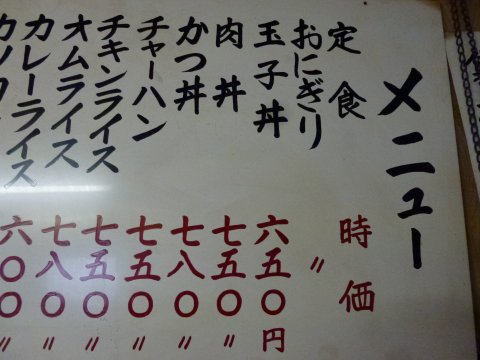 メニュー
定食 時価
おにぎり 〃
玉子丼 六五〇円
肉丼 七五〇〃
かつ丼 七八〇〃
チャーハン 七五〇〃
チキンライス 七五〇〃
オムライス 七八〇〃
カレーライス 六〇〇〃